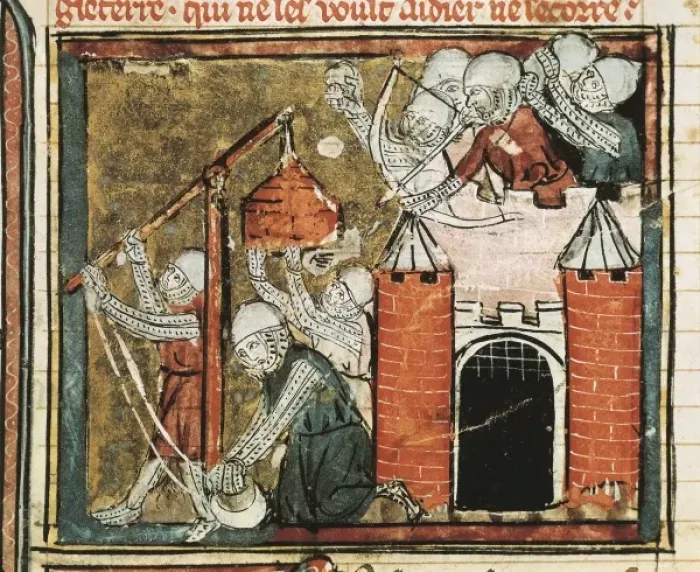 gleterre · qui ne les voult aidier ne secorre: